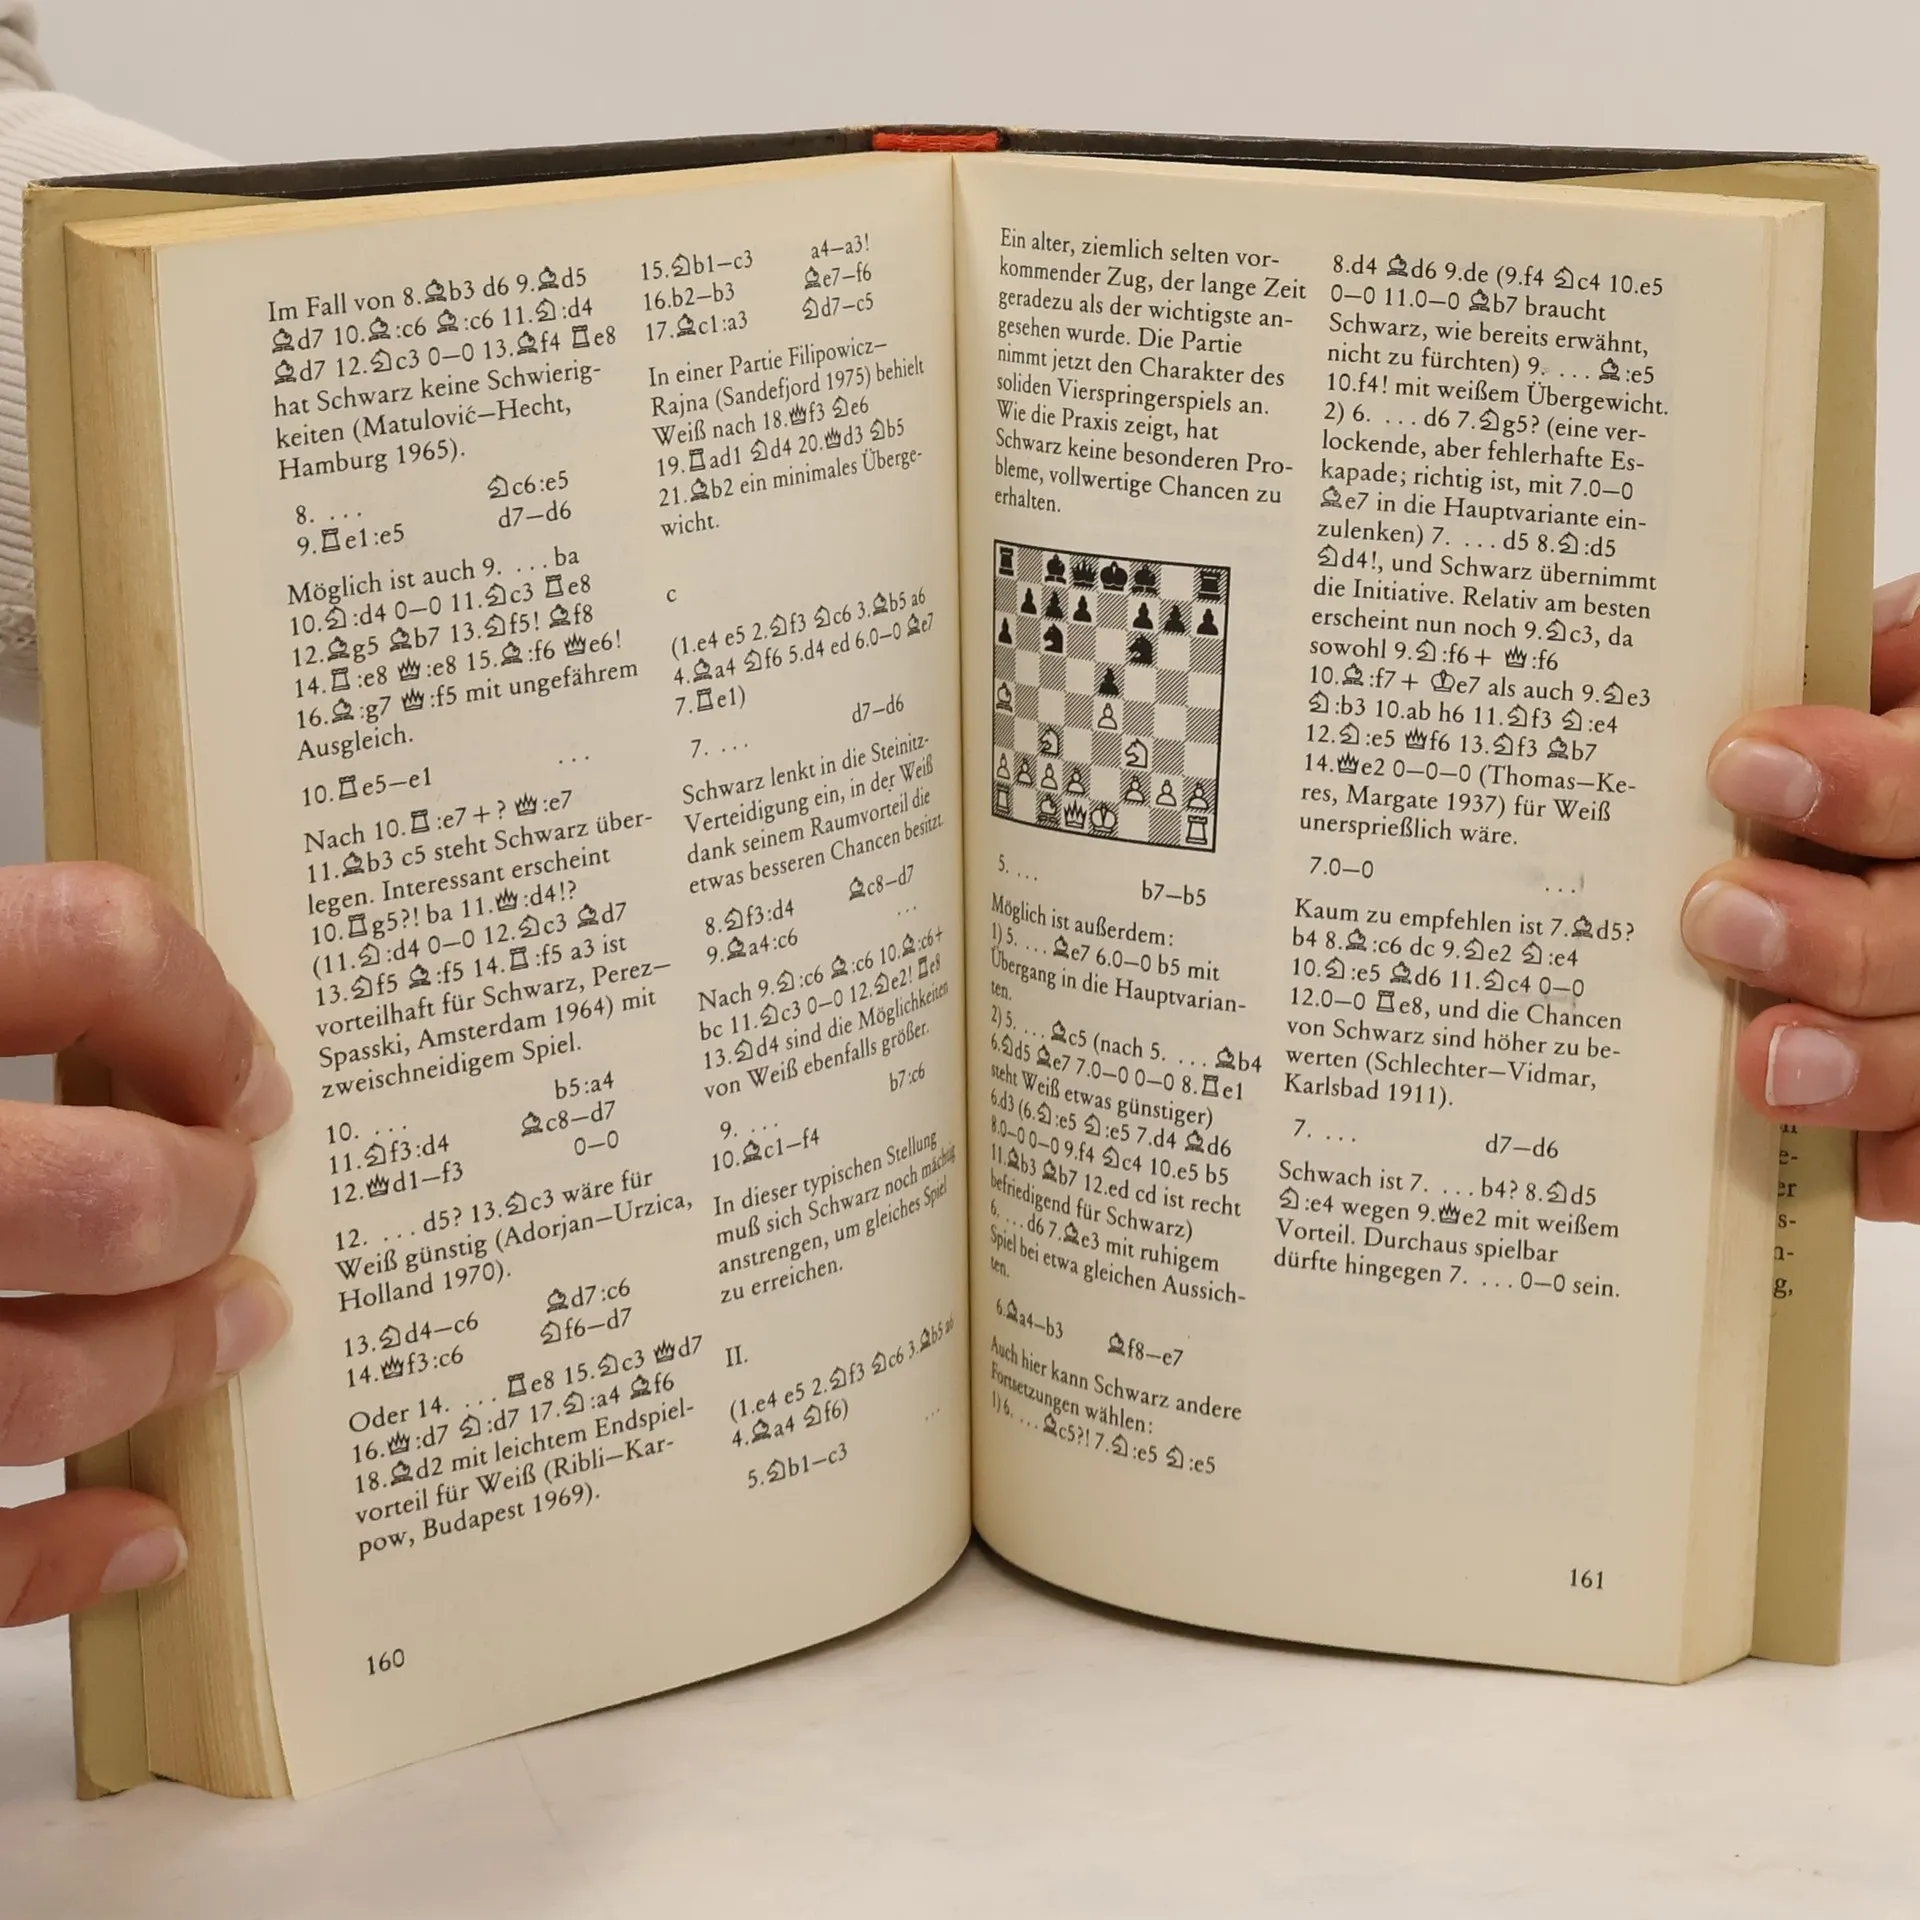 Im Fall von 8.♗b3 d6 9.♗d5
♗d7 10.♗:c6 ♗:c6 11.♘:d4
♗d7 12.♘c3 0–0 13.♗f4 ♖e8
hat Schwarz keine Schwierig-
keiten (Matulović–Hecht,
Hamburg 1965).
8. . . . ♘c6:e5
9.♖e1:e5 d7–d6
Möglich ist auch 9. . . . ba
10.♘:d4 0–0 11.♘c3 ♖e8
12.♗g5 ♗b7 13.♘f5! ♗f8
14.♖:e8 ♕:e8 15.♗:f6 ♕e6!
16.♗:g7 ♕:f5 mit ungefährem
Ausgleich.
10.♖e5–e1 . . .
Nach 10.♖:e7+? ♕:e7
11.♗b3 c5 steht Schwarz über-
legen. Interessant erscheint
10.♖g5?! ba 11.♕:d4!?
(11.♘:d4 0–0 12.♘c3 ♗d7
13.♘f5 ♗:f5 14.♖:f5 a3 ist
vorteilhaft für Schwarz, Perez–
Spasski, Amsterdam 1964) mit
zweischneidigem Spiel.
10. . . . b5:a4
11.♘f3:d4 ♗c8–d7
12.♕d1–f3 0–0
12. . . . d5? 13.♘c3 wäre für
Weiß günstig (Adorjan–Urzica,
Holland 1970).
13.♘d4–c6 ♗d7:c6
14.♕f3:c6 ♘f6–d7
Oder 14. . . . ♖e8 15.♘c3 ♕d7
16.♕:d7 ♘:d7 17.♘:a4 ♗f6
18.♗d2 mit leichtem Endspiel-
vorteil für Weiß (Ribli–Kar-
pow, Budapest 1969).
160
15.♘b1–c3 a4–a3!
16.b2–b3 ♗e7–f6
17.♗c1:a3 ♘d7–c5
In einer Partie Filipowicz–
Rajna (Sandefjord 1975) behielt
Weiß nach 18.♕f3 ♘e6
19.♖ad1 ♘d4 20.♕d3 ♘b5
21.♗b2 ein minimales Überge-
wicht.
c
(1.e4 e5 2.♘f3 ♘c6 3.♗b5 a6
4.♗a4 ♘f6 5.d4 ed 6.0–0 ♗e7
7.♖e1)
7. . . . d7–d6
Schwarz lenkt in die Steinitz-
Verteidigung ein, in der Weiß
dank seinem Raumvorteil die
etwas besseren Chancen besitzt.
8.♘f3:d4 ♗c8–d7
9.♗a4:c6 . . .
Nach 9.♘:c6 ♗:c6 10.♗:c6+
bc 11.♘c3 0–0 12.♘e2! ♖e8
13.♘d4 sind die Möglichkeiten
von Weiß ebenfalls größer.
9. . . . b7:c6
10.♗c1–f4
In dieser typischen Stellung
muß sich Schwarz noch mächtig
anstrengen, um gleiches Spiel
zu erreichen.
II.
(1.e4 e5 2.♘f3 ♘c6 3.♗b5 a6
4.♗a4 ♘f6)
5.♘b1–c3 . . .
Ein alter, ziemlich selten vor-
kommender Zug, der lange Zeit
geradezu als der wichtigste an-
gesehen wurde. Die Partie
nimmt jetzt den Charakter des
soliden Vierspringerspiels an.
Wie die Praxis zeigt, hat
Schwarz keine besonderen Pro-
bleme, vollwertige Chancen zu
erhalten.
5. . . . b7–b5
Möglich ist außerdem:
1) 5. . . . ♗e7 6.0–0 b5 mit
Übergang in die Hauptvarian-
ten.
2) 5. . . . ♗c5 (nach 5. . . . ♗b4
6.♘d5 ♗e7 7.0–0 0–0 8.♖e1
steht Weiß etwas günstiger)
6.d3 (6.♘:e5 ♘:e5 7.d4 ♗d6
8.0–0 0–0 9.f4 ♘c4 10.e5 b5
11.♗b3 ♗b7 12.ed cd ist recht
befriedigend für Schwarz)
6. . . . d6 7.♗e3 mit ruhigem
Spiel bei etwa gleichen Aussich-
ten.
6.♗a4–b3 ♗f8–e7
Auch hier kann Schwarz andere
Fortsetzungen wählen:
1) 6. . . . ♗c5?! 7.♘:e5 ♘:e5
8.d4 ♗d6 9.de (9.f4 ♘c4 10.e5
0–0 11.0–0 ♗b7 braucht
Schwarz, wie bereits erwähnt,
nicht zu fürchten) 9. . . . ♗:e5
10.f4! mit weißem Übergewicht.
2) 6. . . . d6 7.♘g5? (eine ver-
lockende, aber fehlerhafte Es-
kapade; richtig ist, mit 7.0–0
♗e7 in die Hauptvariante ein-
zulenken) 7. . . . d5 8.♘:d5
♘d4!, und Schwarz übernimmt
die Initiative. Relativ am besten
erscheint nun noch 9.♘c3, da
sowohl 9.♘:f6+ ♕:f6
10.♗:f7+ ♔e7 als auch 9.♘e3
♘:b3 10.ab h6 11.♘f3 ♘:e4
12.♘:e5 ♕f6 13.♘f3 ♗b7
14.♕e2 0–0–0 (Thomas–Ke-
res, Margate 1937) für Weiß
unersprießlich wäre.
7.0–0 . . .
Kaum zu empfehlen ist 7.♗d5?
b4 8.♗:c6 dc 9.♘e2 ♘:e4
10.♘:e5 ♗d6 11.♘c4 0–0
12.0–0 ♖e8, und die Chancen
von Schwarz sind höher zu be-
werten (Schlechter–Vidmar,
Karlsbad 1911).
7. . . . d7–d6
Schwach ist 7. . . . b4? 8.♘d5
♘:e4 wegen 9.♕e2 mit weißem
Vorteil. Durchaus spielbar
dürfte hingegen 7. . . . 0–0 sein.
161